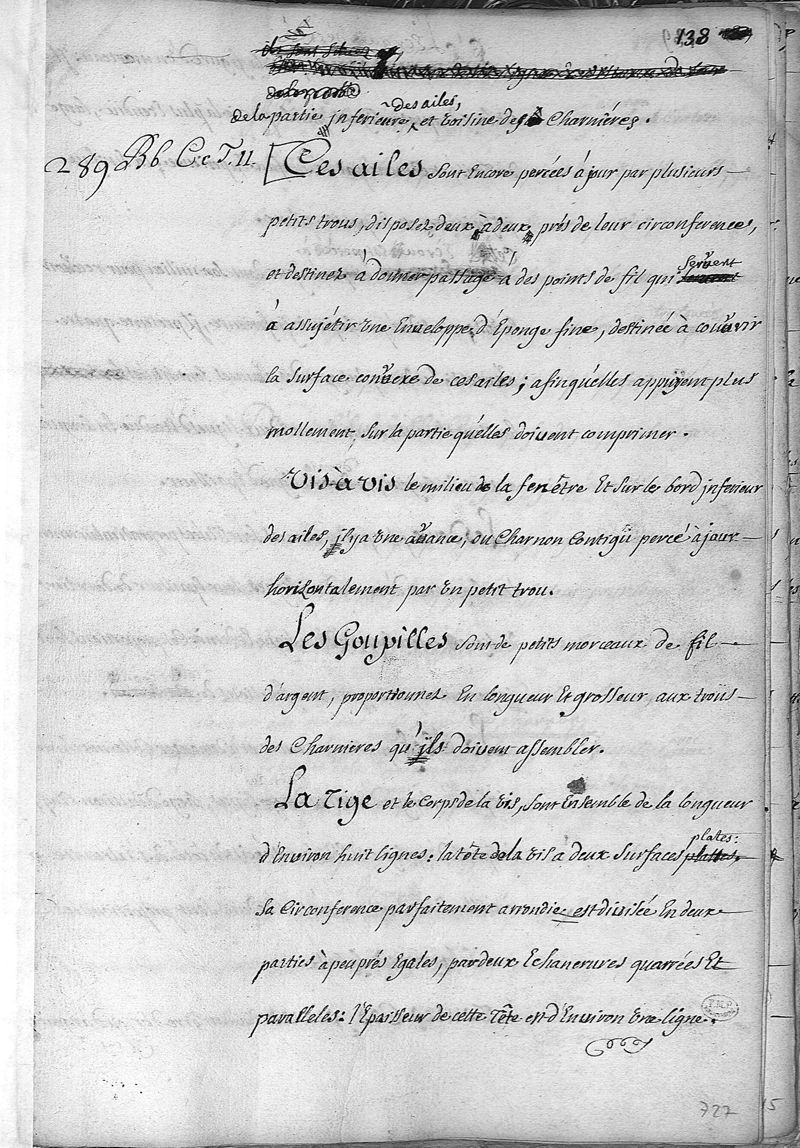 138
de la partie inferieure des ailes, et voisine des Charniéres.
289 Bb C.c T. 11. Ces ailes sont encore percées à jour par plusieurs
petits trous, disposez deux à deux, prés de leur circonference,
et destinez à donner passage à des points de fil qui servent
à assujétir une Enveloppe d'Eponge fine, destinée à couvrir
la surface convexe de ces ailes; afin qu'elles appuyent plus
mollement, sur la partie qu'elles doivent comprimer.
Vis à vis le milieu de la fenêtre Et sur le bord jnferieur
des ailes, jl y a une avance, du Charnon Contigû percé à jour
horizontalement par un petit trou.
Les Goupilles sont de petits morceaux de fil
d'argent, proportionnez En longueur Et grosseur, aux trous
des Charnieres qu'jls doivent assembler.
La Tige et le Corps de la vis, sont Ensemble de la longueur
d'Environ huit lignes: la tête de la vis a deux surfaces plates:
sa Circonference parfaitement arrondie, est divisée En deux
parties à peu prés Egales, par deux Echancrures quarrées Et
paralleles: l'Epaisseur de cette Tête est d'Environ une ligne.
727
15